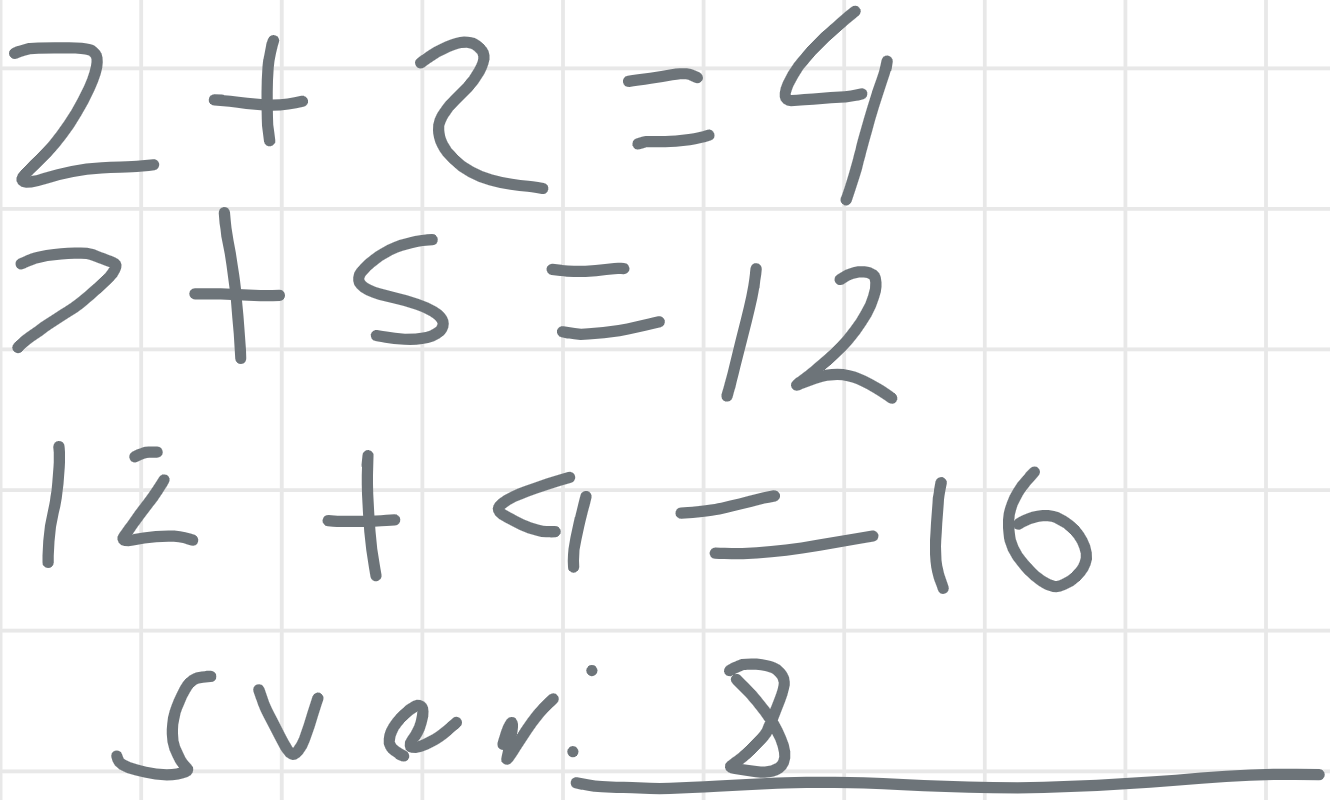 2 + 2 = 4
7 + 5 = 12
12 + 4 = 16
Svar: 8